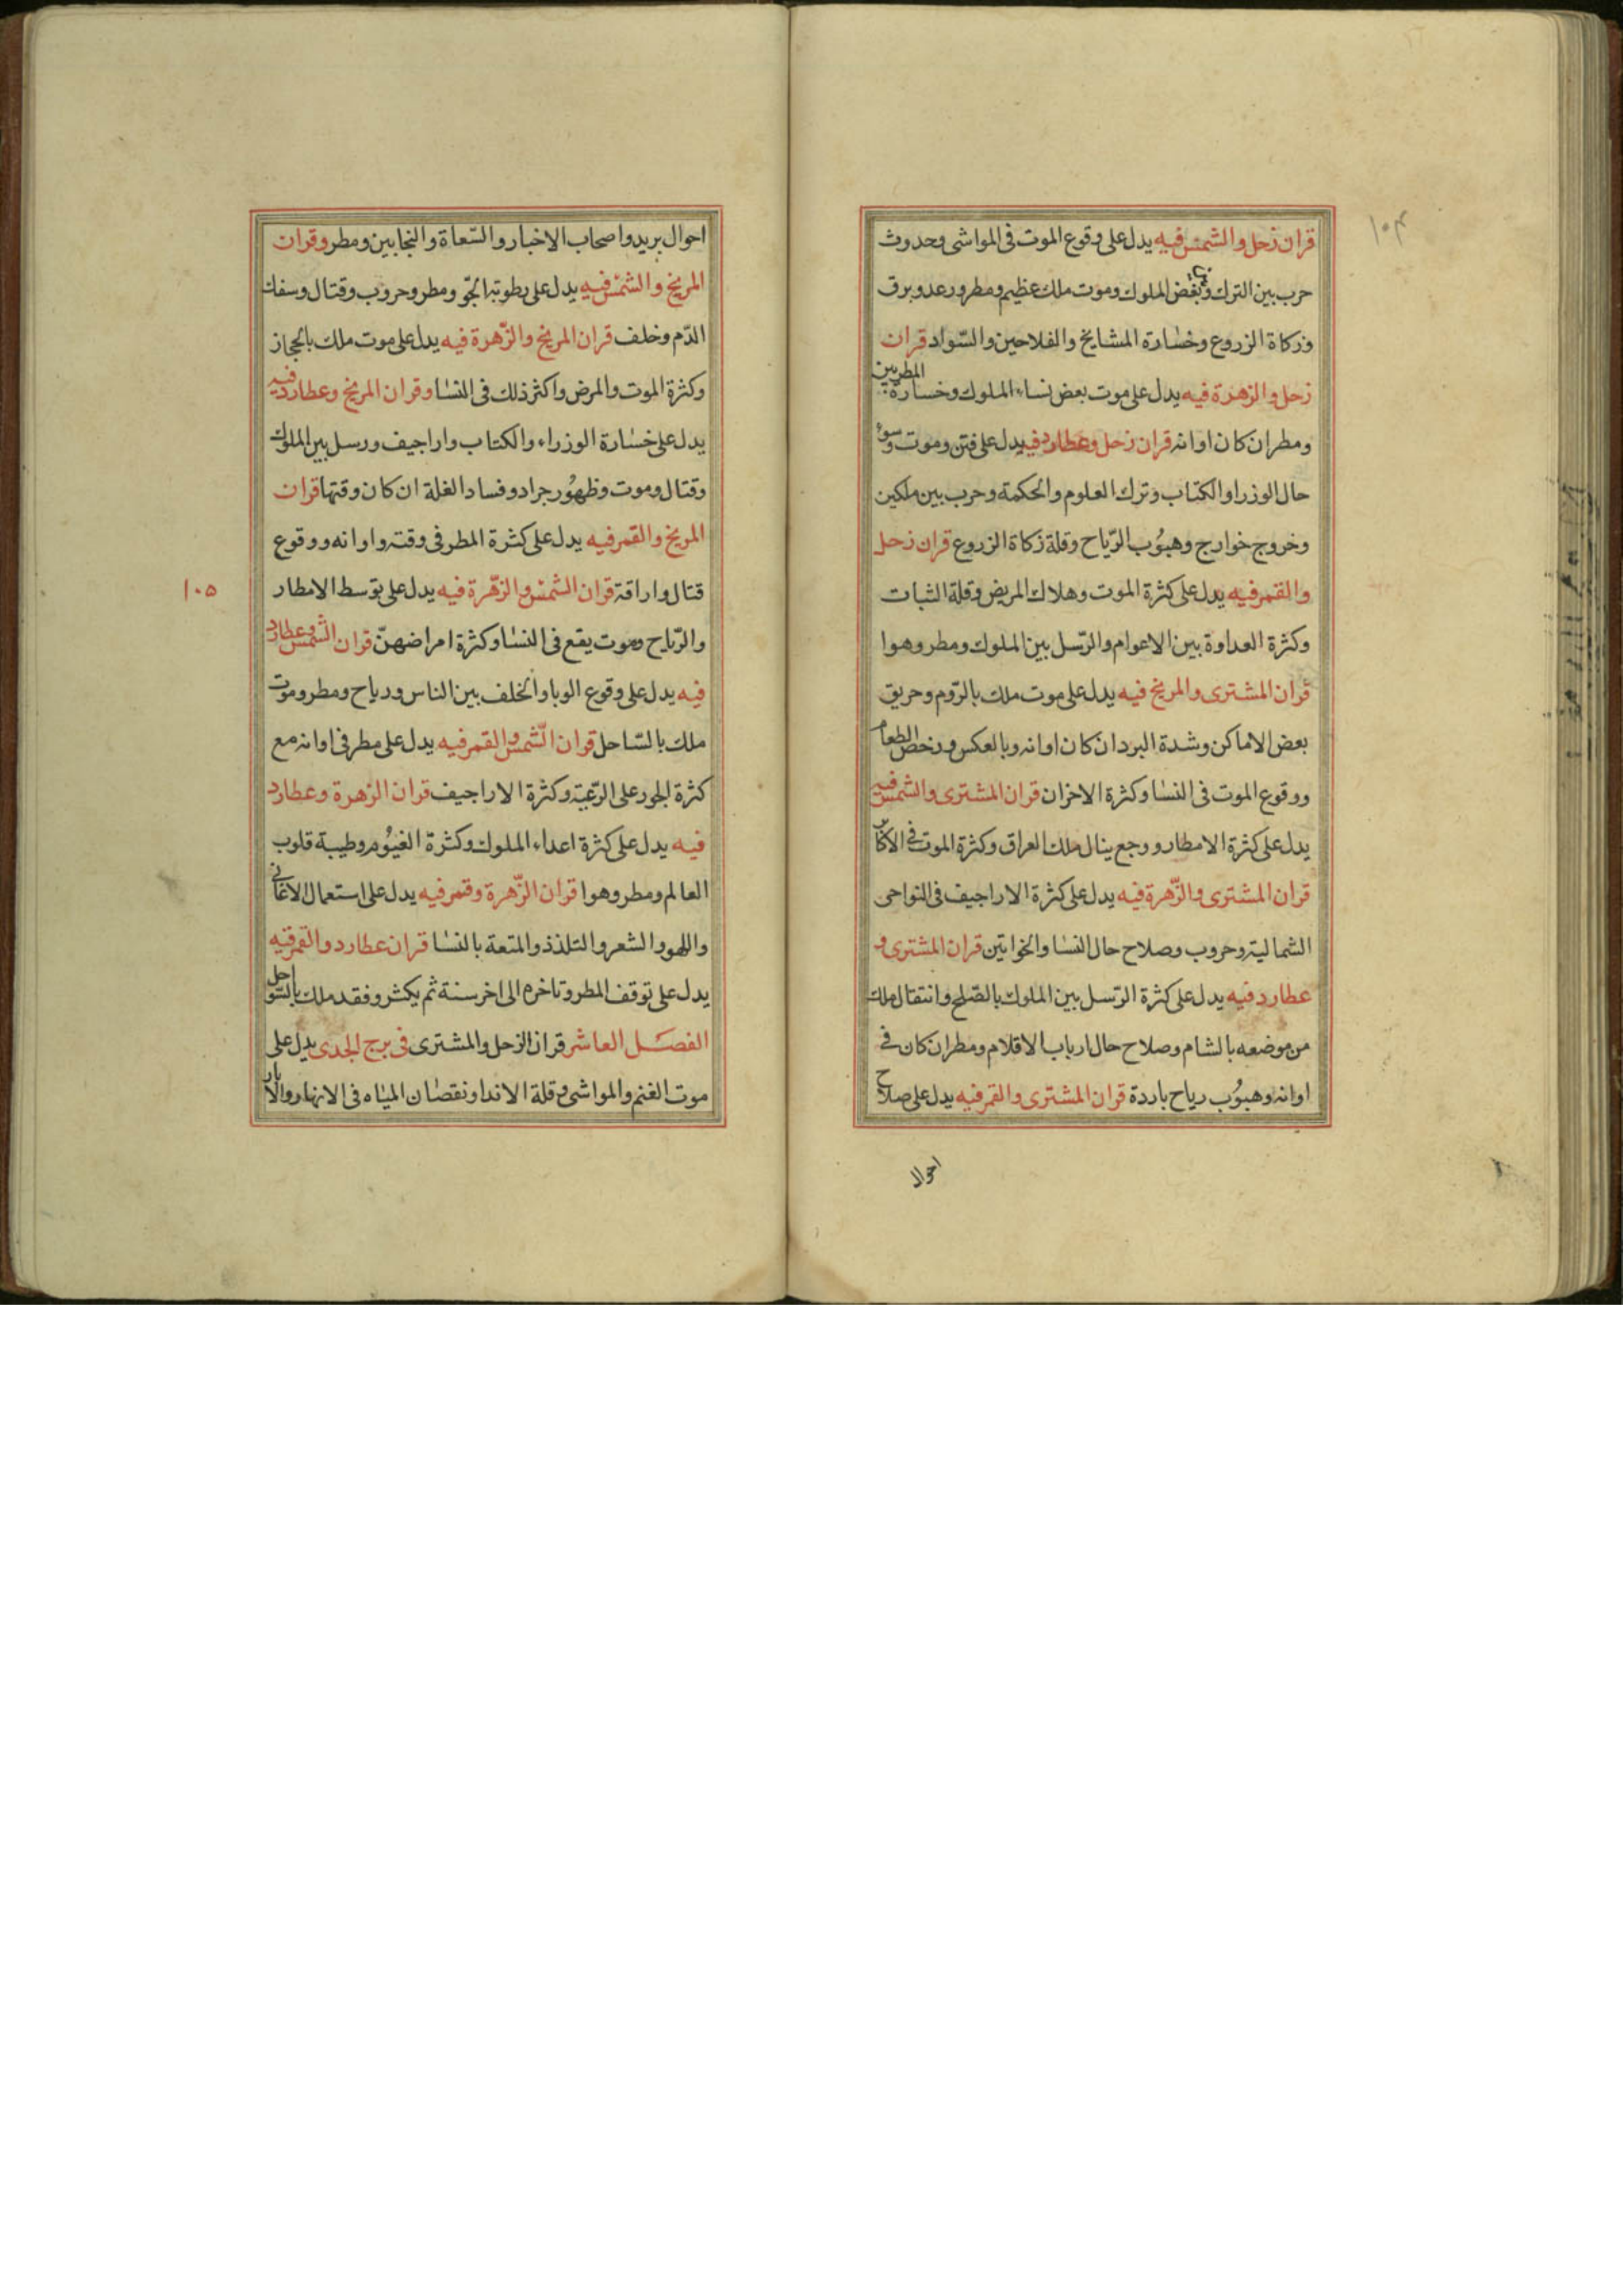 ١٠٤
قران زحل والشمس فيه يدل على وقوع الموت فى المواشى وحدوث
حرب بين الترك وبعض الملوك وموت ملك عظيم ومطر ورعد وبرق
وزكاة الزروع وخسارة المشايخ والفلاحين والسّواد قران
زحل والزهرة فيه يدل على موت بعض نساء الملوك وخسارة المطربين
ومطر ان كان اوانه قران زحل وعطارد فيه يدل على فتن وموت وسوء
حال الوزرا والكتاب وترك العلوم والحكمة وحرب بين ملكين
وخروج خوارج وهبوُب الرّياح وقلة زكاة الزروع قران زحل
والقمر فيه يدل على كثرة الموت وهلاك المريض وقلة الثبات
وكثرة العداوة بين الاعوام والرّسل بين الملوك ومطر وهوا
قران المشترى والمريخ فيه يدل على موت ملك بالرّوم وحريق
بعض الاماكن وشدة البرد ان كان اوانه وبالعكس ورخص الطعام
ووقوع الموت فى النسا وكثرة الاحزان قران المشترى والشمس فيه
يدل على كثرة الامطار ووجع ينال ملك العراق وكثرة الموت فى الاكابر
قران المشترى والزّهرة فيه يدل على كثرة الاراجيف فى النواحى
الشمالية وحروب وصلاح حال النسا والخواتين قران المشترى و
عطارد فيه يدل على كثرة الرّسل بين الملوك بالصّلح وانتقال ملك
من موضعه بالشام وصلاح حال ارباب الاقلام ومطر ان كان فى
اوانه وهبوُب رياح باردة قران المشترى والقمر فيه يدل على صلاح
احوال
احوال بريد واصحاب الاخبار والسّعاة والنجابين ومطر وقران
المريخ والشمس فيه يدل على رطوبة الجوّ ومطر وحروب وقتال وسفك
الدّم وخلف قران المريخ والزّهرة فيه يدل على موت ملك بالحجاز
وكثرة الموت والمرض واكثر ذلك فى النسا وقران المريخ وعطارد فيه
يدل على خسارة الوزراء والكتاب واراجيف ورسل بين الملوك
وقتال وموت وظهوُر جراد وفساد الغلة ان كان وقتها قران
المريخ والقمر فيه يدل على كثرة المطر فى وقته واوانه ووقوع
قتال واراقة قران الشمس والزّهرة فيه يدل على توسط الامطار
١٠٥
والرّياح وموت يقع فى النسا وكثرة امراضهنّ قران الشمس وعطارد
فيه يدل على وقوع الوبا والخلف بين الناس ورياح ومطر وموت
ملك بالسّاحل قران الشّمس والقمر فيه يدل على مطر فى اوانه مع
كثرة الجور على الرّعيّة وكثرة الاراجيف قران الزهرة وعطارد
فيه يدل على كثرة اعداء الملوك وكثرة الغيُوم وطيبة قلوب
العالم ومطر وهوا قران الزّهرة وقمر فيه يدل على استعمال الاغانى
واللهو والشعر والتلذذ والمتعة بالنسا قران عطارد والقمر فيه
يدل على توقف المطر وتاخره الى اخر سنة ثم يكثر وفقد ملك بالسّواحل
الفصل العاشر قران الزحل والمشترى فى برج الجدى يدل على
موت الغنم والمواشى وقلة الاندا ونقصان المياه فى الانهار والابار